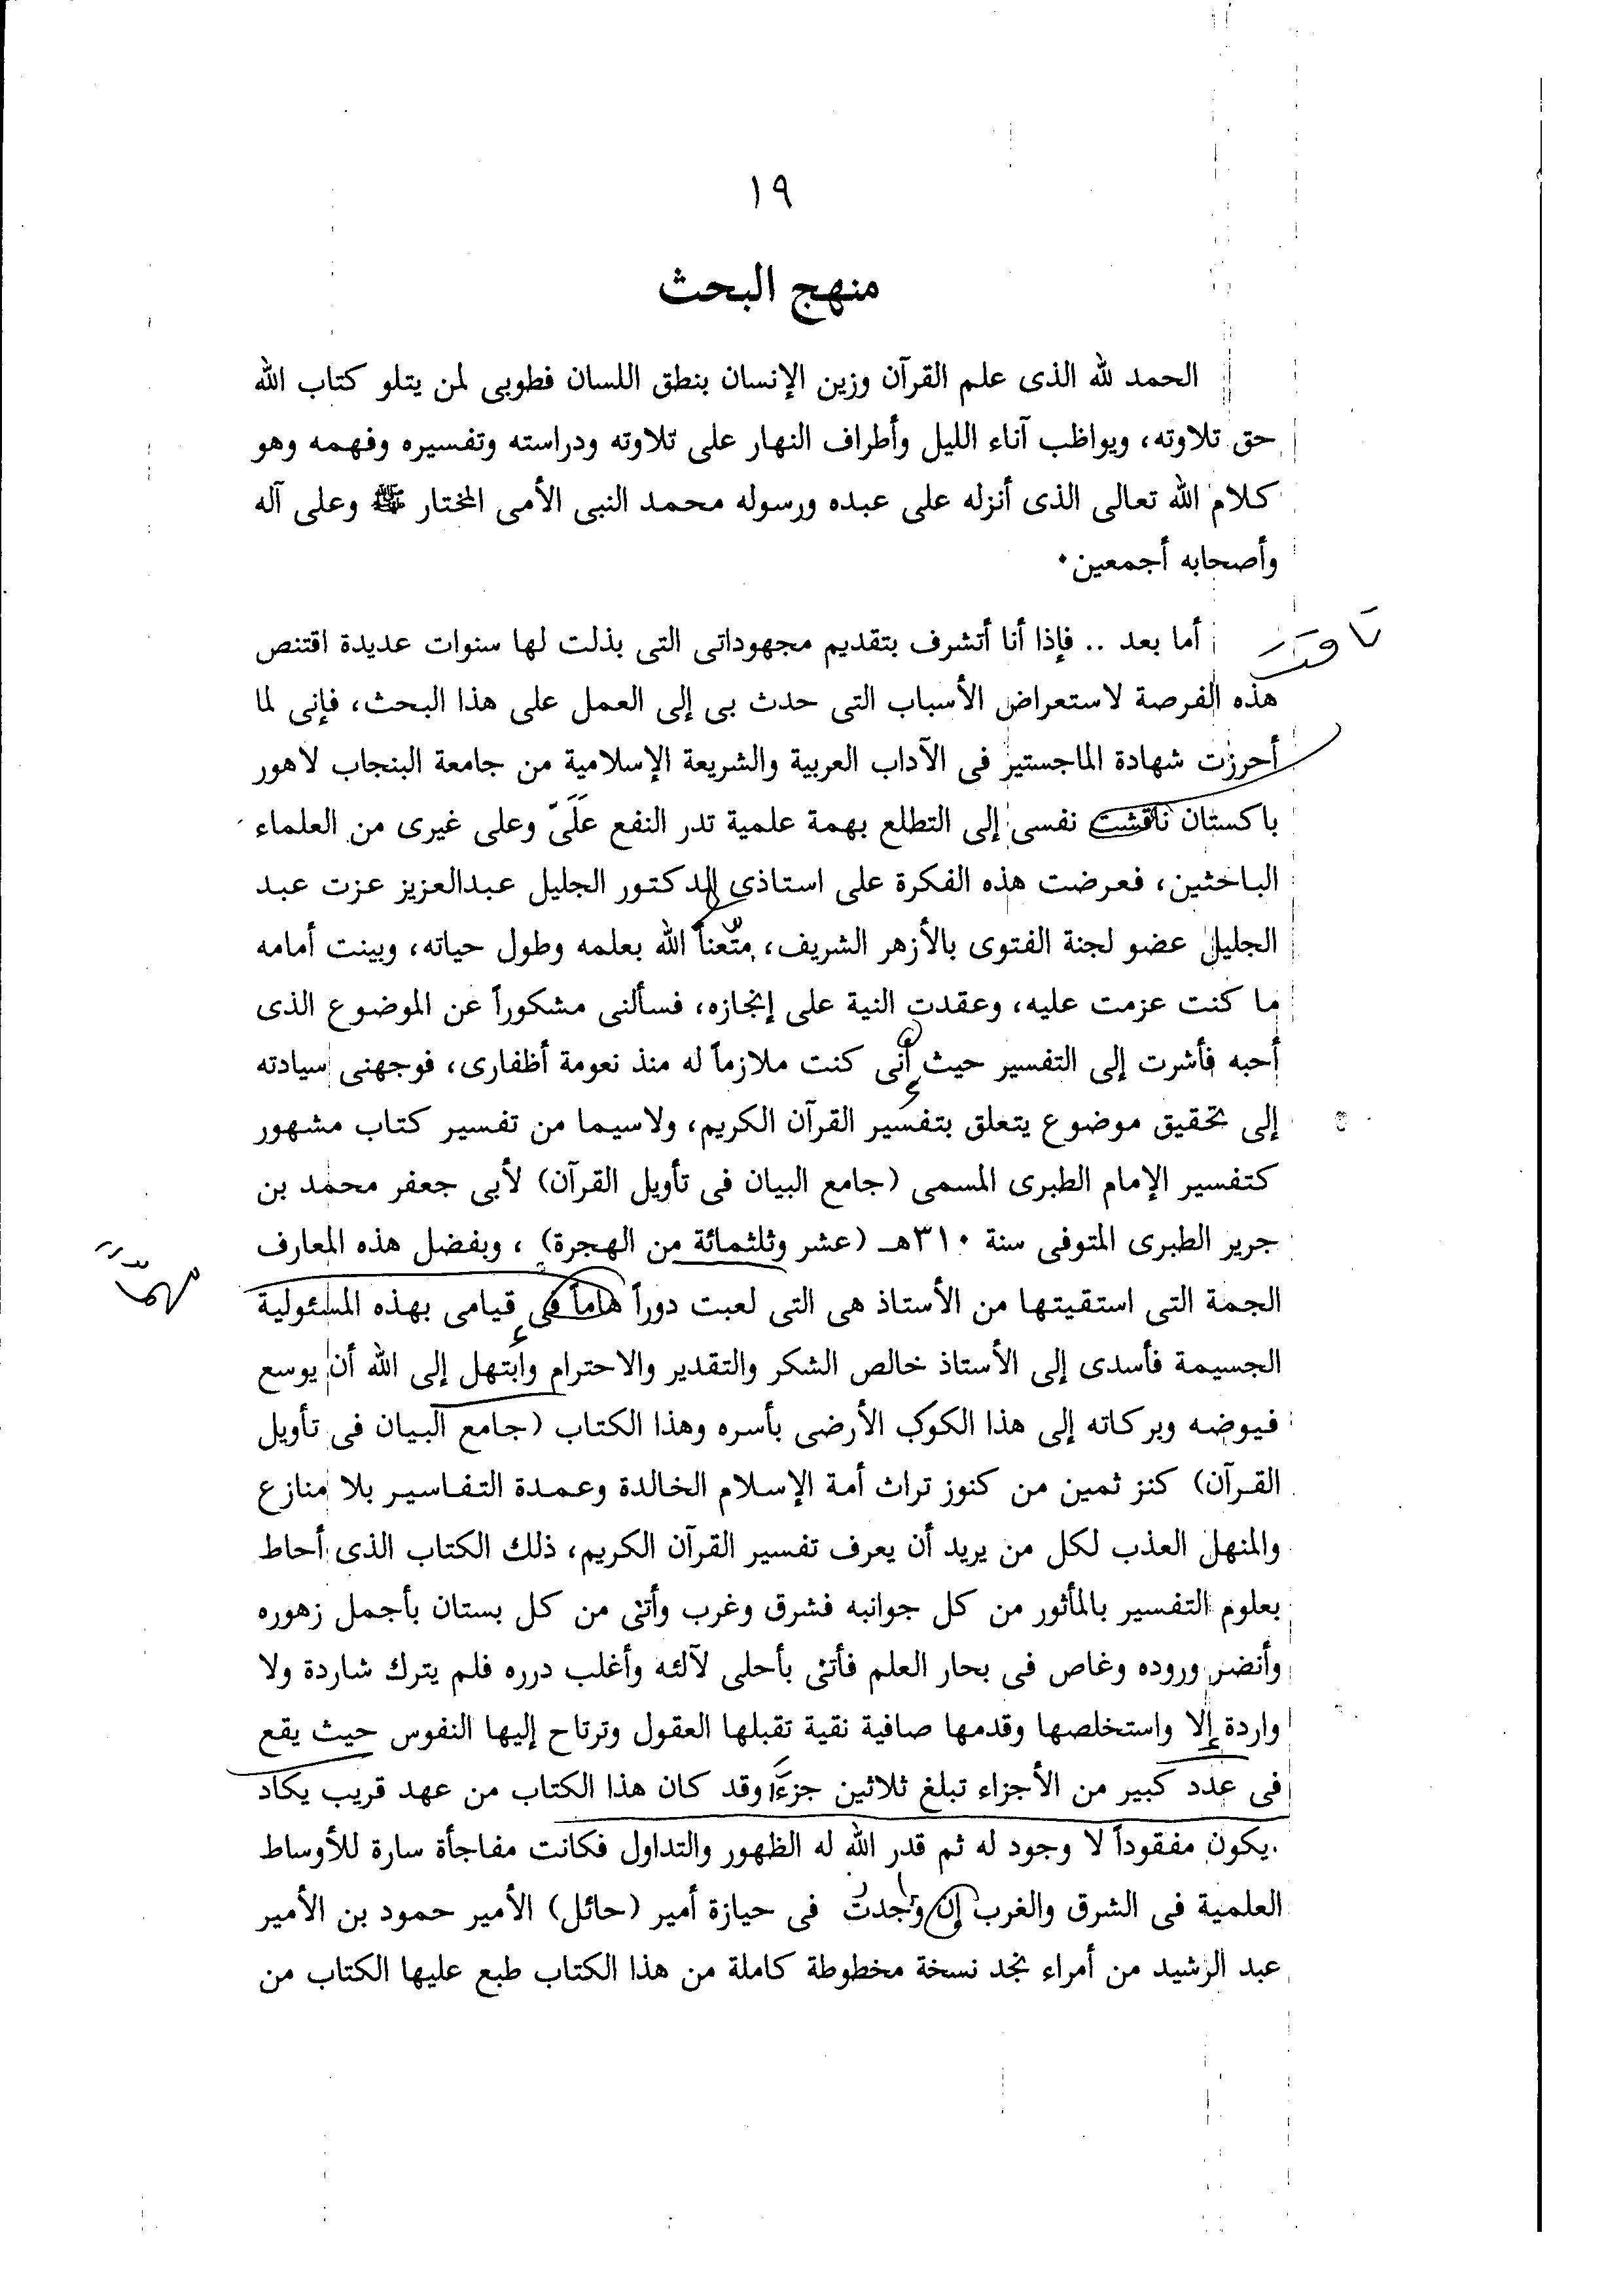 ١٩
منهج البحث
الحمد لله الذى علم القرآن وزين الإنسان بنطق اللسان فطوبى لمن يتلو كتاب الله
حق تلاوته، ويواظب آناء الليل وأطراف النهار على تلاوته ودراسته وتفسيره وفهمه وهو
كلام الله تعالى الذى أنزله على عبده ورسوله محمد النبى الأمى المختار ﷺ وعلى آله
وأصحابه أجمعين.
أما بعد .. فإذا أنا أتشرف بتقديم مجهوداتى التى بذلت لها سنوات عديدة اقتنص
هذه الفرصة لاستعراض الأسباب التى حدث بى إلى العمل على هذا البحث، فإنى لما
أحرزت شهادة الماجستير فى الآداب العربية والشريعة الإسلامية من جامعة البنجاب لاهور
باكستان ناقشت نفسى إلى التطلع بهمة علمية تدر النفع عَلَىّ وعلى غيرى من العلماء
الباحثين، فعرضت هذه الفكرة على استاذى الدكتور الجليل عبدالعزيز عزت عبد
الجليل عضو لجنة الفتوى بالأزهر الشريف، متّعنا الله بعلمه وطول حياته، وبينت أمامه
ما كنت عزمت عليه، وعقدت النية على إنجازه، فسألنى مشكوراً عن الموضوع الذى
أحبه فأشرت إلى التفسير حيث أنى كنت ملازماً له منذ نعومة أظفارى، فوجهنى سيادته
إلى تحقيق موضوع يتعلق بتفسير القرآن الكريم، ولاسيما من تفسير كتاب مشهور
كتفسير الإمام الطبرى المسمى (جامع البيان فى تأويل القرآن) لأبى جعفر محمد بن
جرير الطبرى المتوفى سنة ٣١٠هـ (عشر وثلثمائة من الهجرة) ، وبفضل هذه المعارف
الجمة التى استقيتها من الأستاذ هى التى لعبت دوراً هاماً فى قيامى بهذه المسئولية
الجسيمة فأسدى إلى الأستاذ خالص الشكر والتقدير والاحترام وابتهل إلى الله أن يوسع
فيوضه وبركاته إلى هذا الكوكب الأرضى بأسره وهذا الكتاب (جامع البيان فى تأويل
القرآن) كنز ثمين من كنوز تراث أمة الإسلام الخالدة وعمدة التفاسير بلا منازع
والمنهل العذب لكل من يريد أن يعرف تفسير القرآن الكريم، ذلك الكتاب الذى أحاط
بعلوم التفسير بالمأثور من كل جوانبه فشرق وغرب وأتى من كل بستان بأجمل زهوره
وأنضر وروده وغاص فى بحار العلم فأتى بأحلى لآلئه وأغلب درره فلم يترك شاردة ولا
واردة إلا واستخلصها وقدمها صافية نقية تقبلها العقول وترتاح إليها النفوس حيث يقع
فى عدد كبير من الأجزاء تبلغ ثلاثين جزءًا وقد كان هذا الكتاب من عهد قريب يكاد
يكون مفقوداً لا وجود له ثم قدر الله له الظهور والتداول فكانت مفاجأة سارة للأوساط
العلمية فى الشرق والغرب إن وجدت فى حيازة أمير (حائل) الأمير حمود بن الأمير
عبد الرشيد من أمراء نجد نسخة مخطوطة كاملة من هذا الكتاب طبع عليها الكتاب من